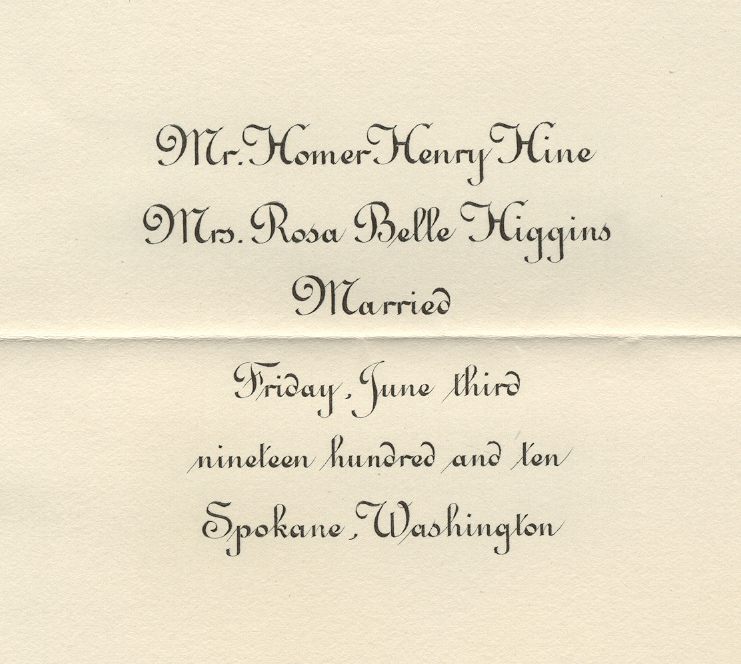 Mr. Homer Henry Hine
Mrs. Rosa Belle Higgins
Married
Friday, June third
nineteen hundred and ten
Spokane, Washington